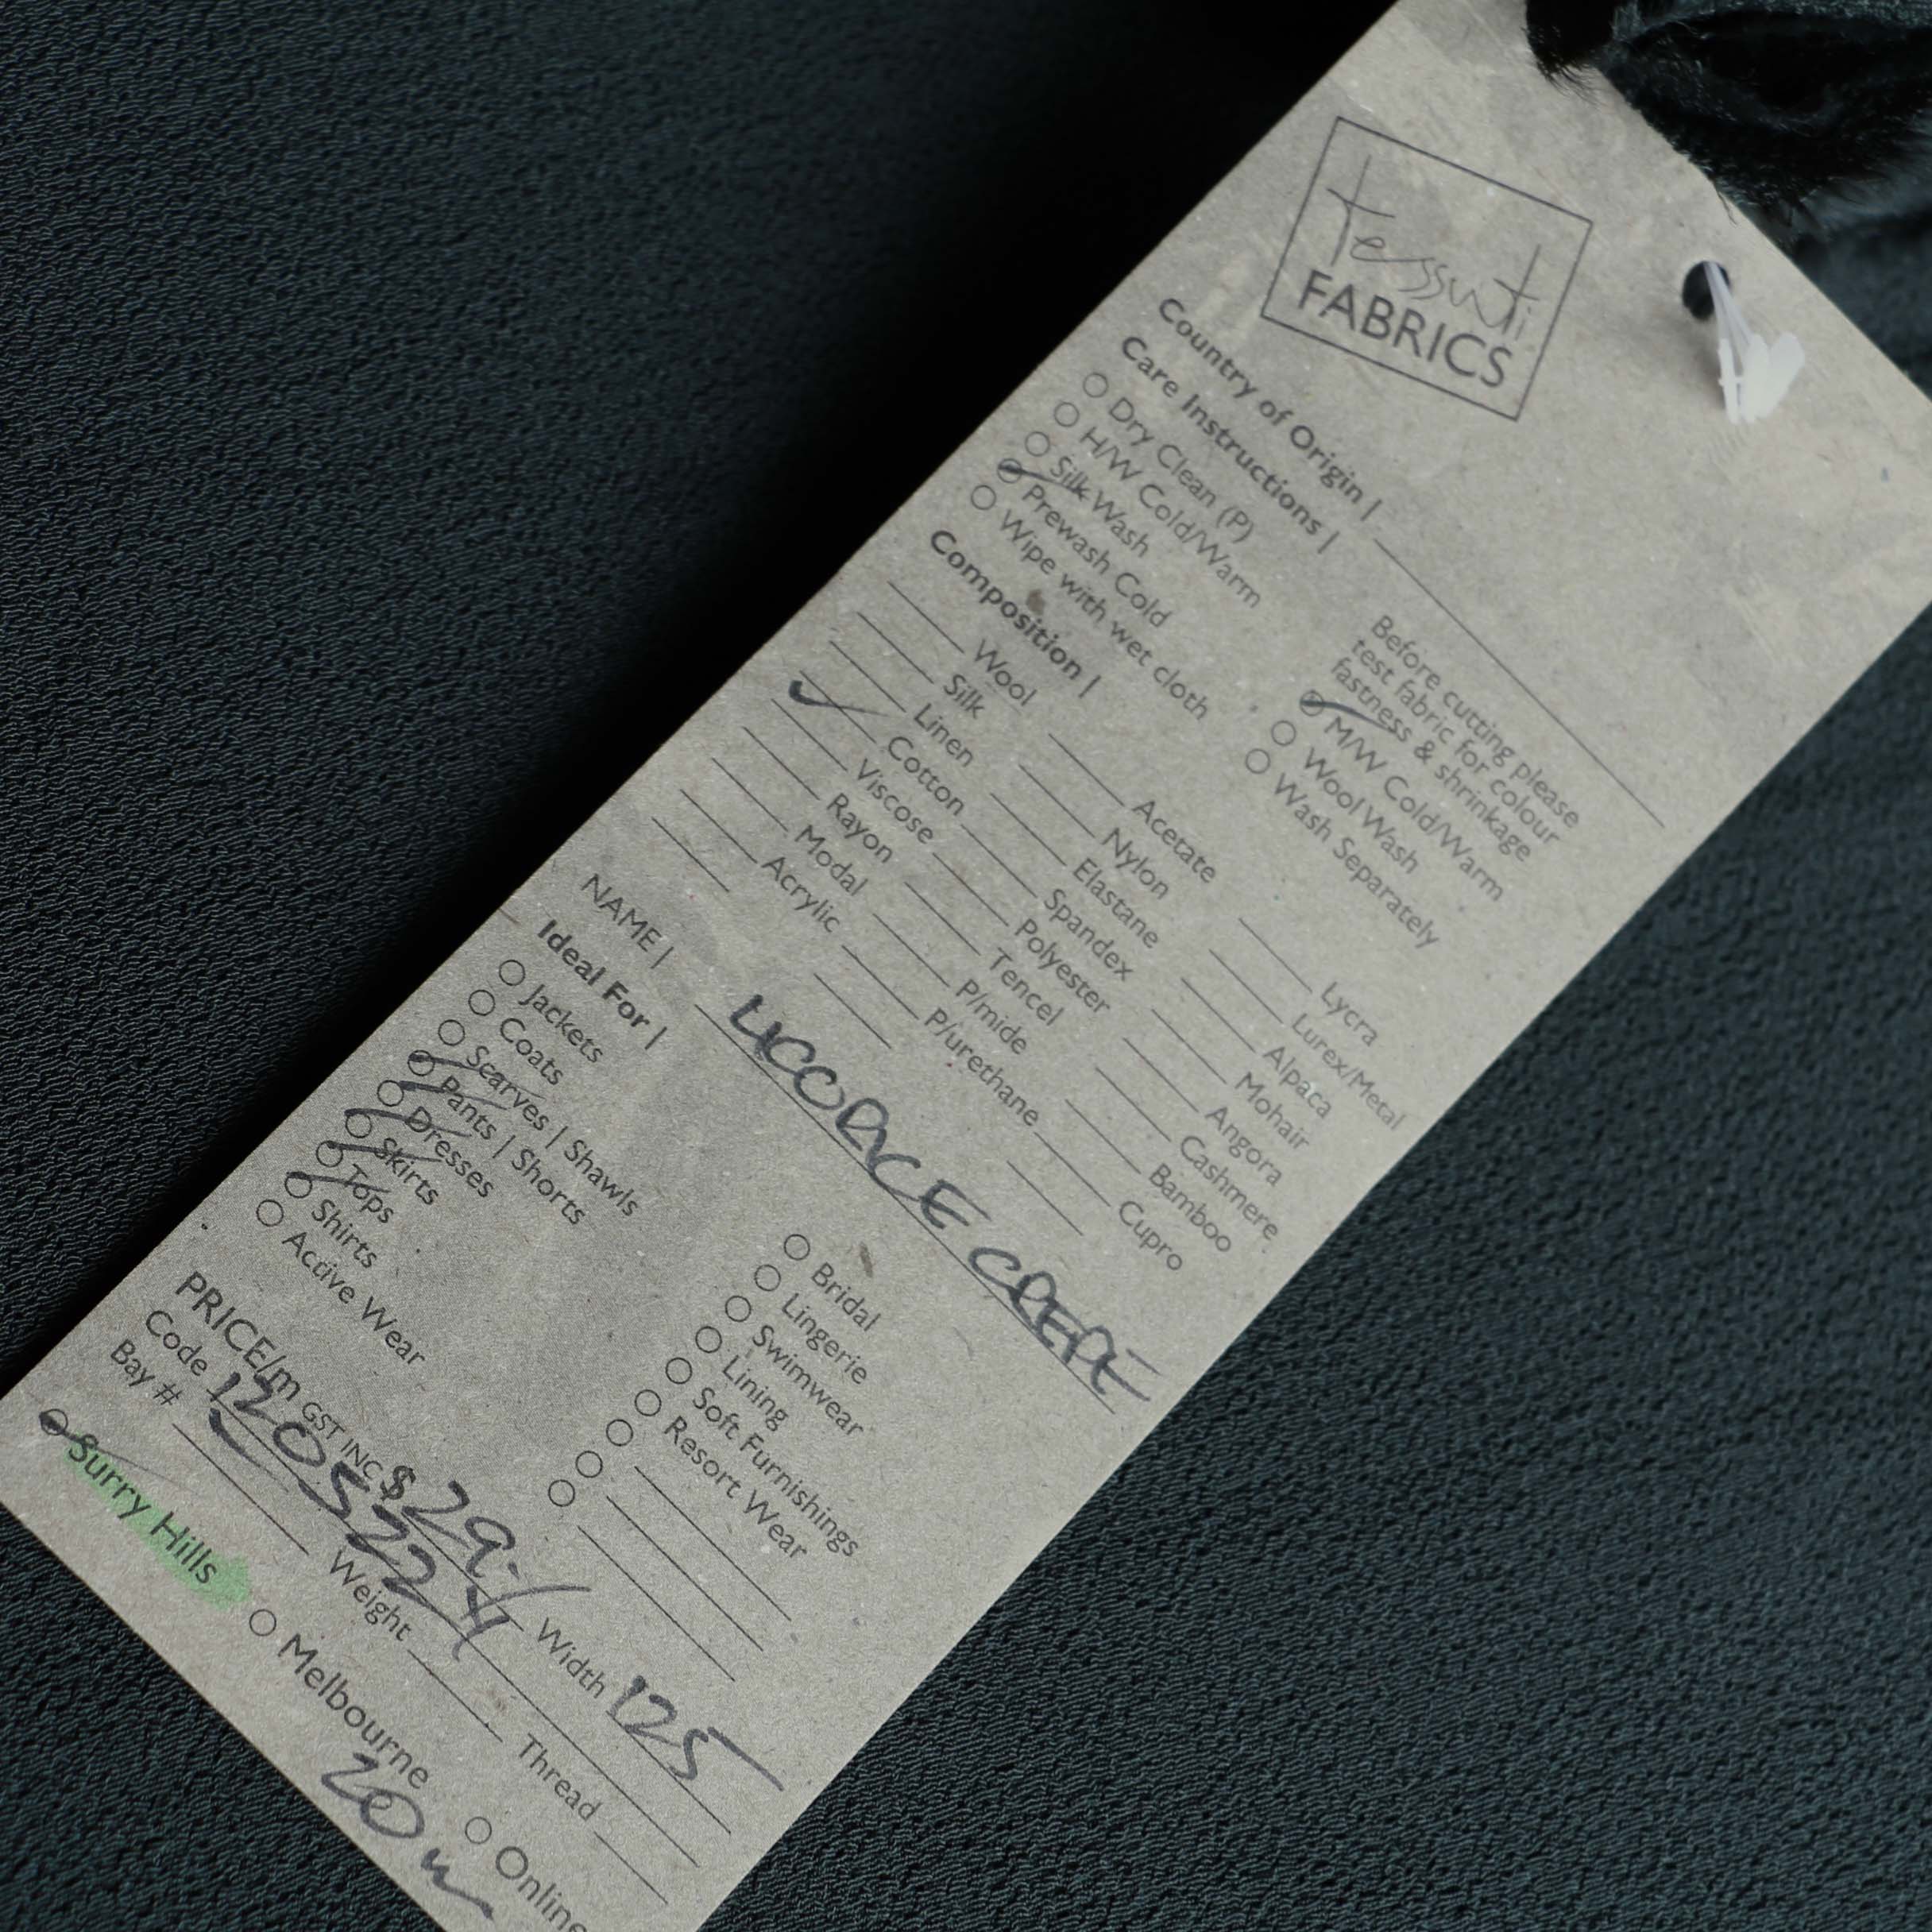 tessuti
FABRICS
Country of Origin |
Care Instructions |
Before cutting please
test fabric for colour
fastness & shrinkage
Dry Clean (P)
H/W Cold/Warm
Silk Wash
Prewash Cold
Wipe with wet cloth
M/W Cold/Warm
Wool Wash
Wash Separately
Composition |
Wool Acetate Lycra
Silk Nylon Lurex/Metal
Linen Elastane Alpaca
Cotton Spandex Mohair
Viscose Polyester Angora
Rayon Tencel Cashmere
Modal P/mide Bamboo
Acrylic P/urethane Cupro
NAME | LICORICE CREPE
Ideal For |
Jackets
Coats
Scarves | Shawls
Pants | Shorts
Dresses
Skirts
Tops
Shirts
Active Wear
Bridal
Lingerie
Swimwear
Lining
Soft Furnishings
Resort Wear
PRICE/m GST INC $ 29.- Width 125
Code 1205224
Bay # Weight Thread
Surry Hills Melbourne Online
20m